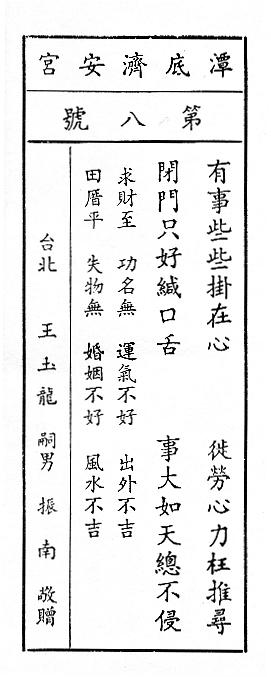 潭底濟安宮
第八號
有事些些掛在心　徙勞心力枉推尋
閉門只好緘口舌　事大如天總不侵
求財至　功名無　運氣不好　出外不吉
田厝平　失物無　婚姻不好　風水不吉
台北　王圡龍　嗣男　振南　敬贈